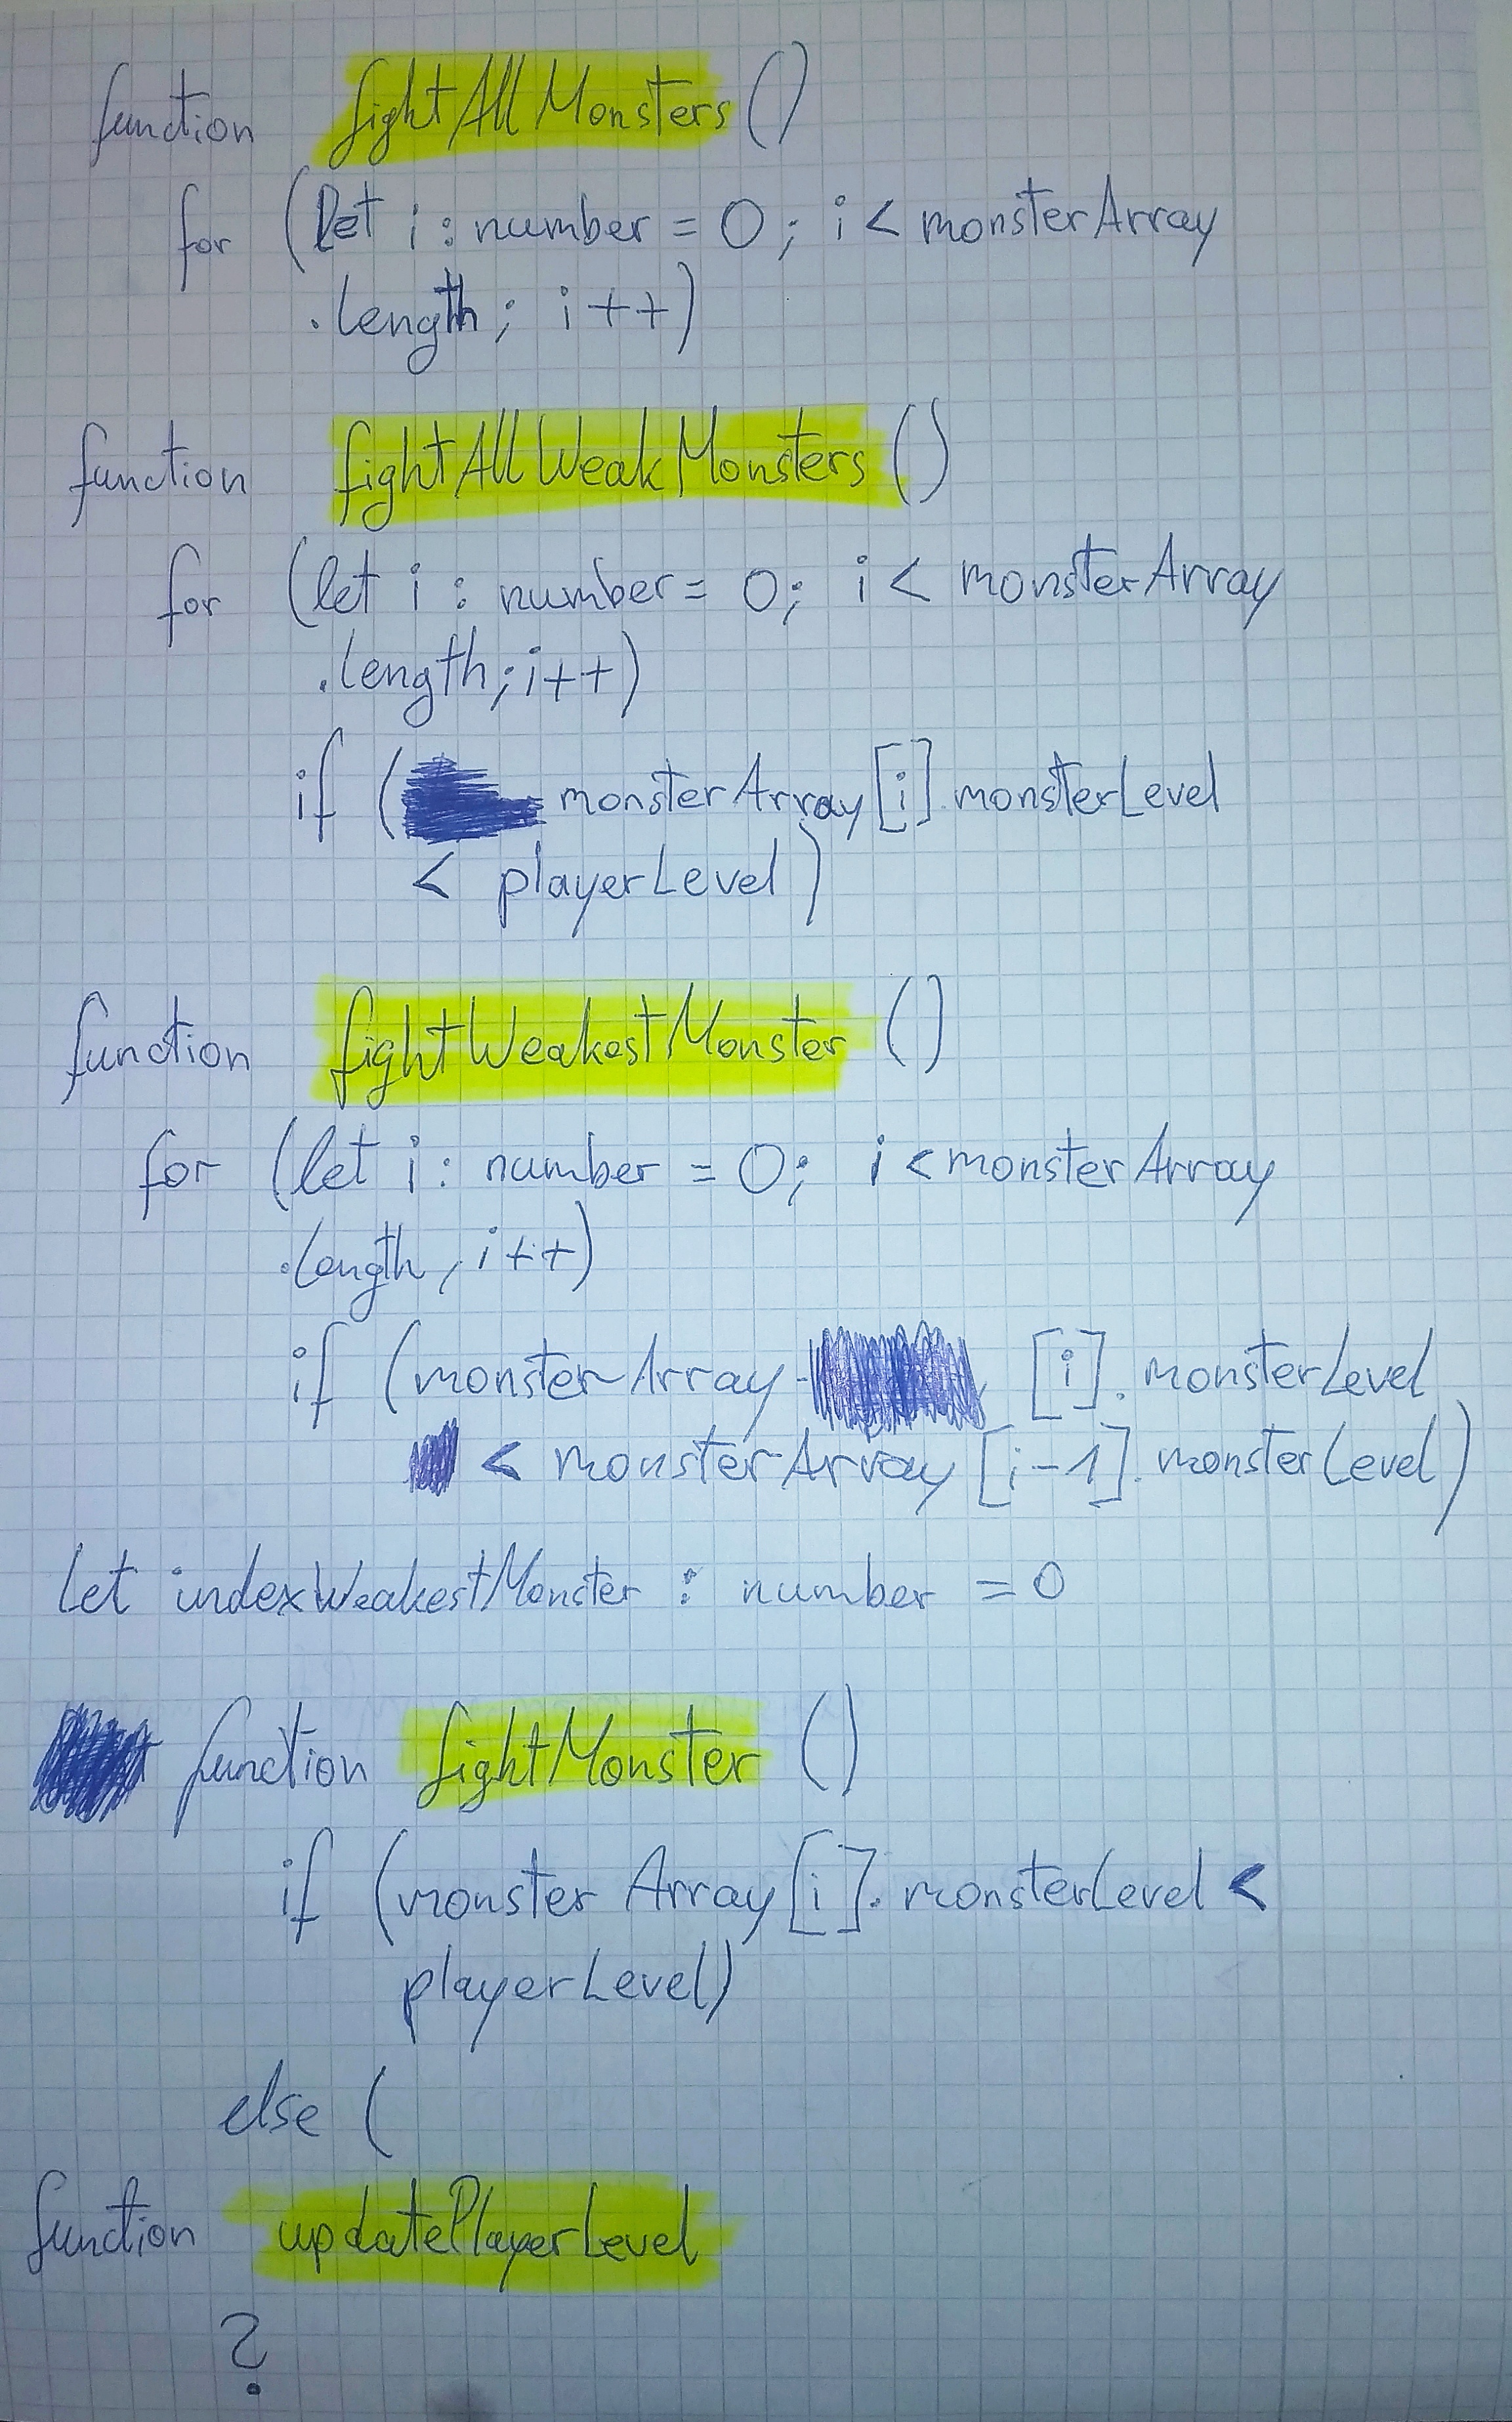 function fightAllMonsters ()
for (let i : number = 0 ; i < monsterArray
.length ; i ++)
function fightAllWeakMonsters ()
for (let i : number = 0; i < monsterArray
.length; i++)
if ( monsterArray[i].monsterLevel
< playerLevel)
function fightWeakestMonster ()
for (let i : number = 0; i < monsterArray
.length , i ++)
if (monsterArray [i]. monsterLevel
< monsterArray [i-1]. monsterLevel)
let indexWeakestMonster : number = 0
function fightMonster ()
if (monster Array[i]. monsterLevel <
playerLevel)
else (
function updatePlayerLevel
?